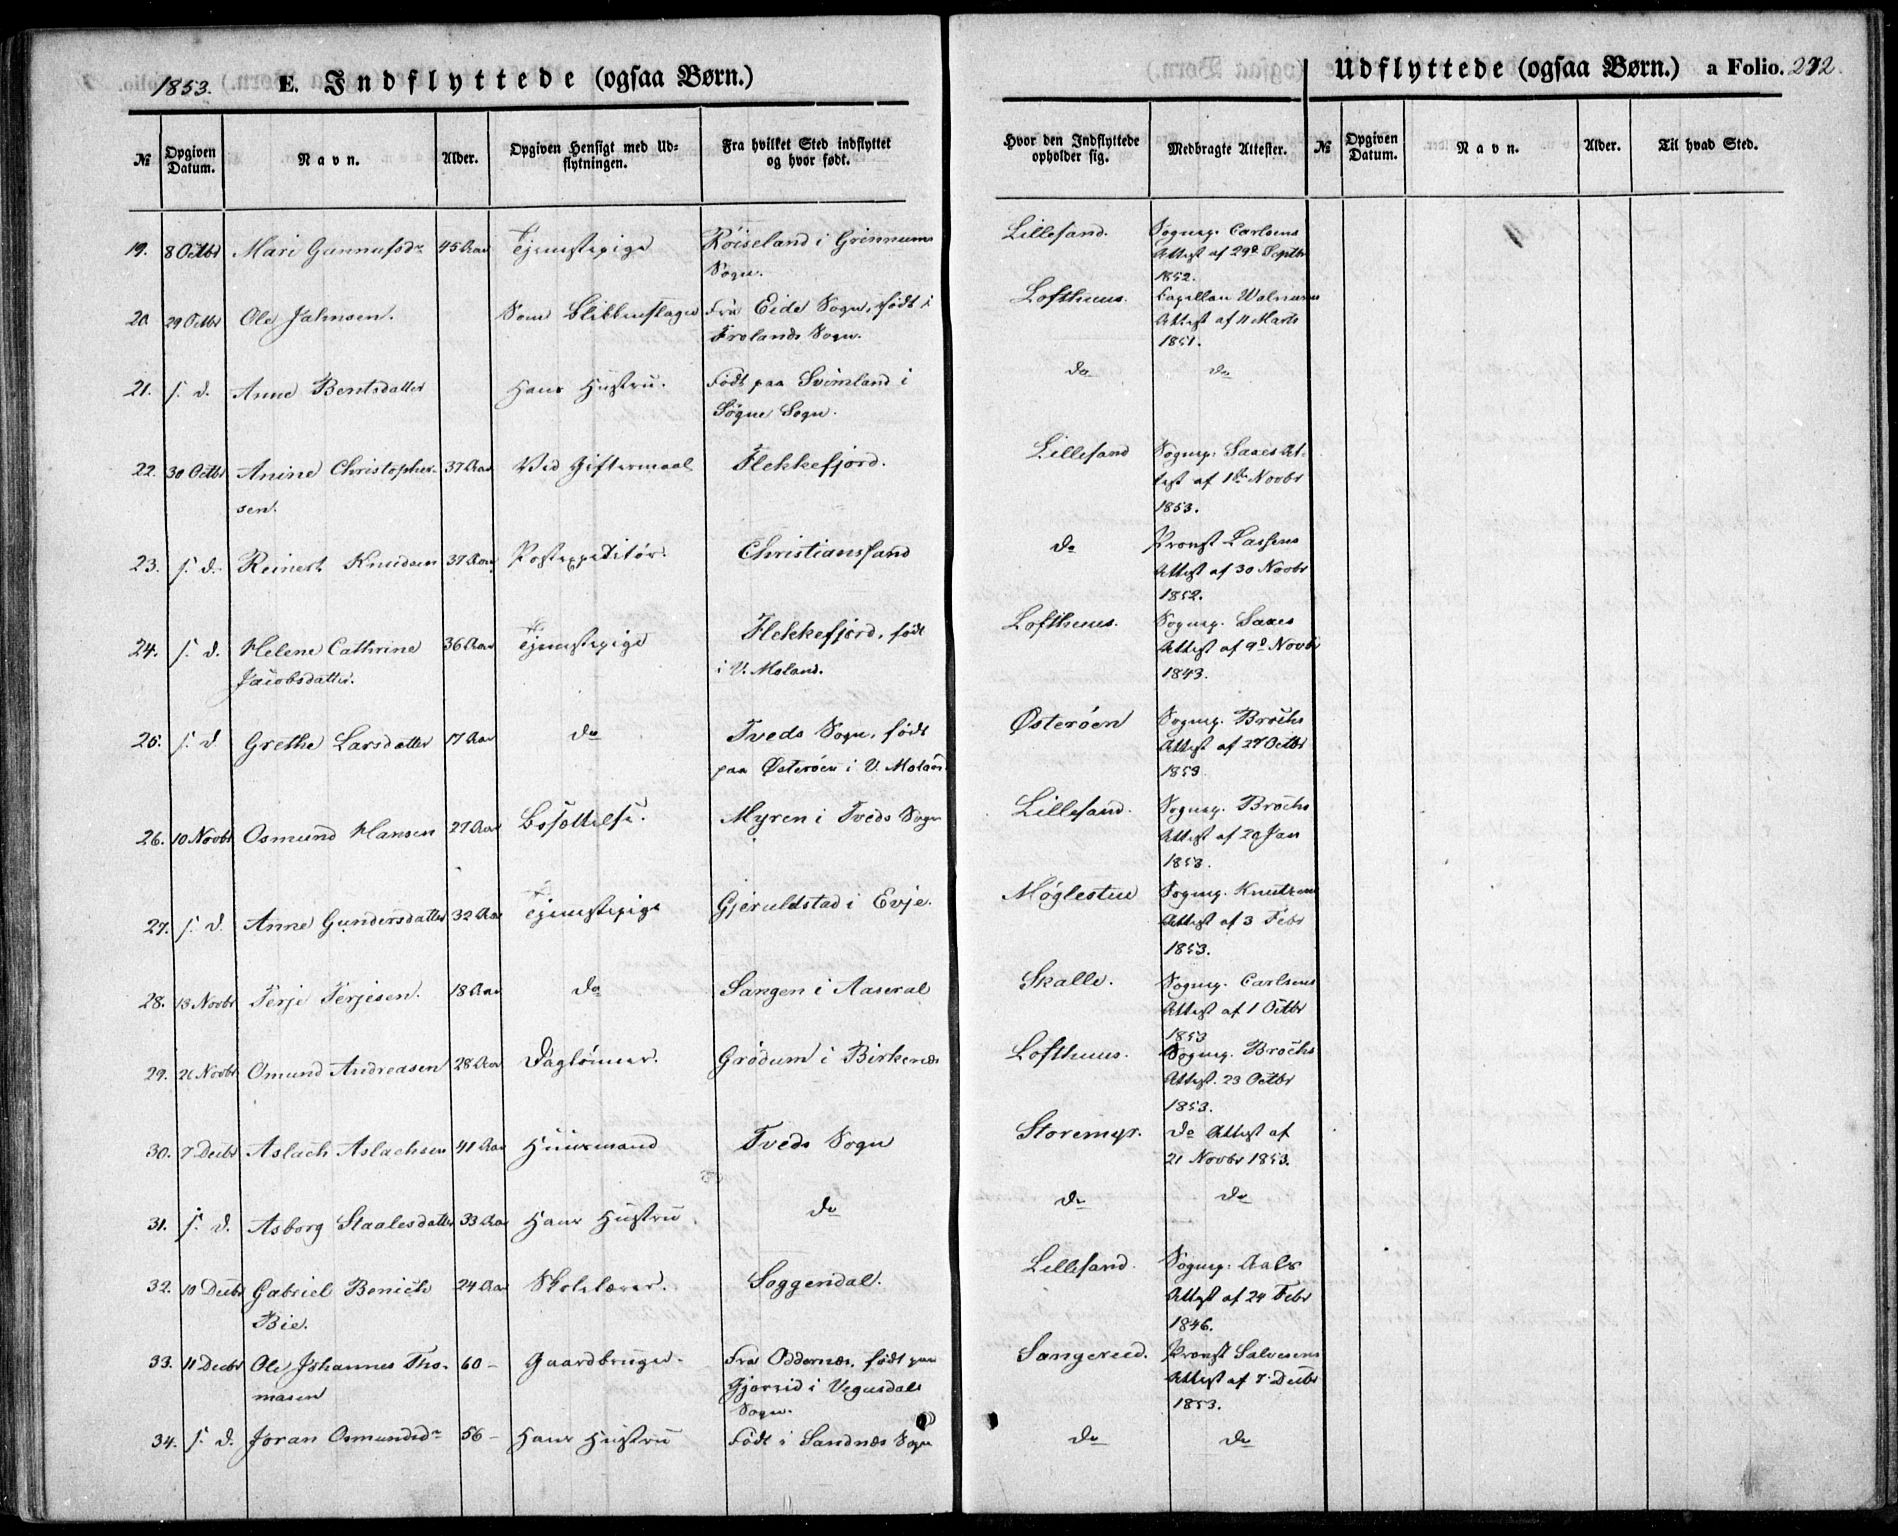 1853. E. Indflyttede (ogsaa Børn.)
Udflyttede (ogsaa Børn.) a Folio. 272.
№ Opgiven Datum. Navn. Alder. Opgiven Hensigt med Udflytningen. Fra hvilket Sted indflyttet og hvor født. Hvor den Indflyttede opholder sig. Medbragte Attester. № Opgiven Datum. Navn. Alder. Til hvad Sted.
19. 8 Octbr Mari Gunnufsdr 45 Aar Tjenestepige Røiseland i Grinnums Lillesand. Sognep. Carlsens
Sogn. Attest af 29d Septbr
1852.
20 29 Octbr Ole Jahnsen. Som Blikkenslager Fra Eide Sogn, født i Lofthuus. Capellan
Frolands Sogn. Attest af 11 Marts
1851.
21. s. d. Anne Bentsdatter Hans Hustru. Født paa i do do
Søgne Sogn.
22. 30 Octbr Anine Christopher- 37 Aar Ved Giftermaal Flekkefjord. Lillesand Sognep. Saaes At-
sen. test af 1de Novbr
1853.
23. s. d. Reinert Knudsen 37 Aar Postexpeditør. Christianssand do Provst Lassens
Attest af 30 Novbr
1852.
24. s. d. Helene Cathrine 36 Aar Tjenestepige Flekkefjord, født Lofthuus. Sognep. Saaes
Jacobsdatter. i V. Moland. Attest af 9d Novbr
1843.
25. s. d. Grethe Larsdatter 17 Aar do Tveds Sogn, født Østerøen Sognep. Brochs
paa Østerøen i V. Moland Attest af 27 Octbr
1853.
26. 10 Novbr Osmund Hansen 27 Aar Bosættelse. Myren i Tveds Sogn Lillesand. Sognep. Brochs
Attest af 20 Jan
1853.
27. s. d. Anne Gundersdatter 32 Aar Tjenestepige Gjeruldstad i Evje. Møglestue Sognep. Knutzens
Attest af 3 Febr
1853.
28. 13 Novbr Terje Terjesen. 18 Aar do Sangen i Aaseral Skalle. Sognep. Carlsens
Attest af 1 Octbr
1853
29. 21 Novbr Omund Andreasen 28 Aar Dagløinner. Grødum i Birkenæs Lofthuus. Sognep. Brochs
Attest. 23 Octbr
1853.
30. 7 Decbr Aslach Aslachsen 41 Aar Huusmand Tveds Sogn Storemyr. do Attest af
21 Novbr 1853.
31. s. d. Asborg Staalesdatter 33 Aar Hans Hustru do do do
32. 10 Decbr Gabriel Benich 24 Aar Skolelærer. Soggendal. Lillesand. Sognep. Aals
Bie. Attest af 24 Febr
1846.
33. 11 Decbr Ole Johannes Tho- 60 – Gaardbruger. Fra Oddernæs, født paa Sangereid. Provst Salvesens
masen i Vegusdals Attest af 7 Decbr
Sogn. 1853.
34. s. d. Joran Osmundsdr 56 – Hans Hustru Født i Sandnæs Sogn do do